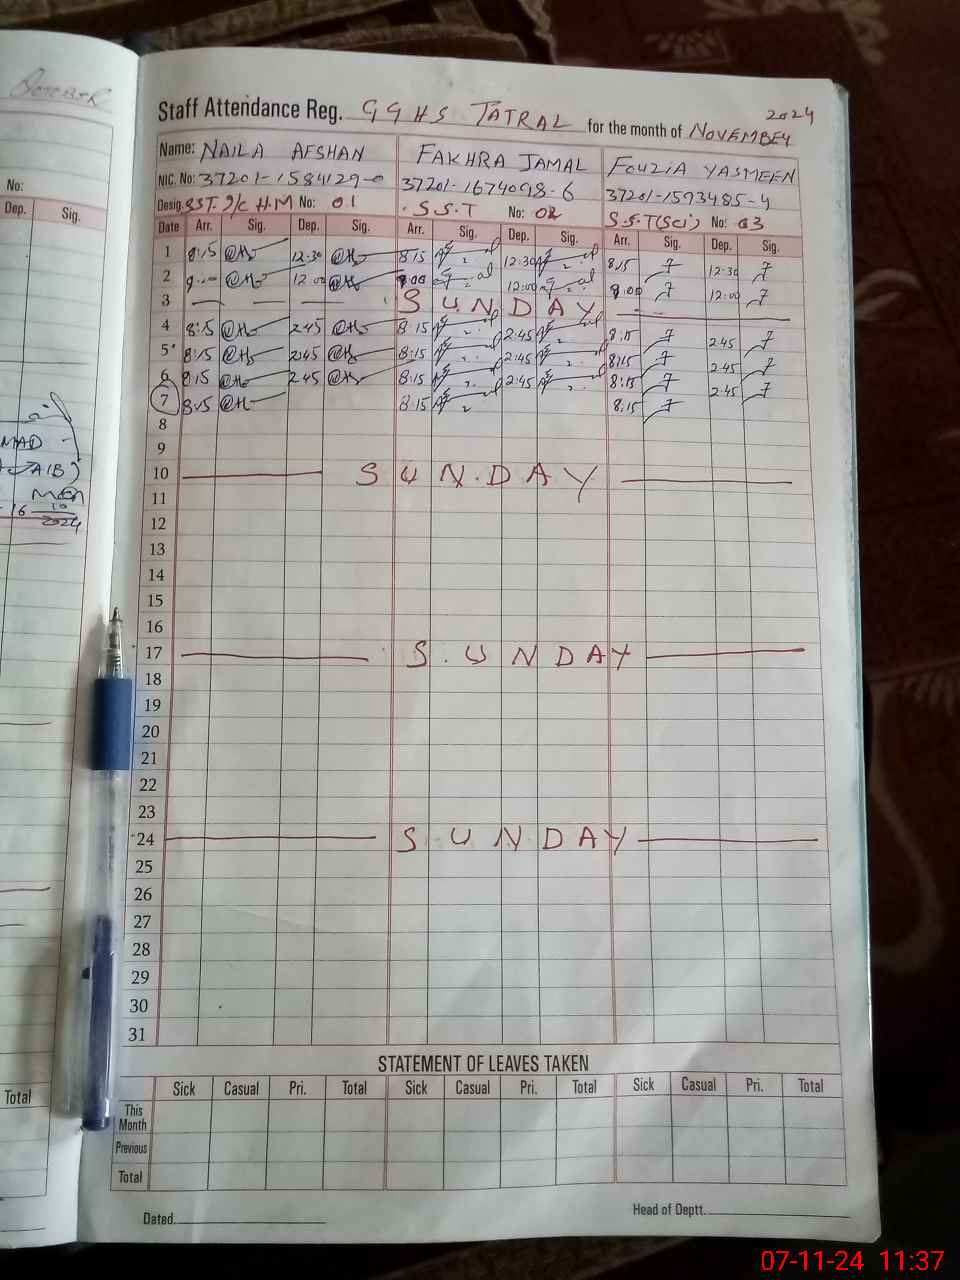 October
No:
Dep. Sig.
MAD
16 10 2024
Total
Staff Attendance Reg. GGHS TATRAL for the month of NOVEMBER 2024
Name: NAILA AFSHAN FAKHRA JAMAL FOUZIA YASMEEN
NIC. No: 37201-1584129-0 37201-1674098-6 37201-1593485-4
Desig. SST. I/C H.M No: 01 S.S.T No: 02 S.S.T(Sci) No: 03
Date Arr. Sig. Dep. Sig. Arr. Sig. Dep. Sig. Arr. Sig. Dep. Sig.
1 8:15 12:30 8:15 12:30 8:15 12:30
2 8:00 12:00 8:00 12:00 8:00 12:00
3 SUNDAY
4 8:15 2:45 8:15 2:45 8:15 2:45
5 8:15 2:45 8:15 2:45 8:15 2:45
6 8:15 2:45 8:15 2:45 8:15 2:45
7 8:15 8:15 8:15
8
9
10 SUNDAY
11
12
13
14
15
16
17 SUNDAY
18
19
20
21
22
23
24 SUNDAY
25
26
27
28
29
30
31
STATEMENT OF LEAVES TAKEN
Sick Casual Pri. Total Sick Casual Pri. Total Sick Casual Pri. Total
This Month
Previous
Total
Dated. Head of Deptt.
07-11-24 11:37